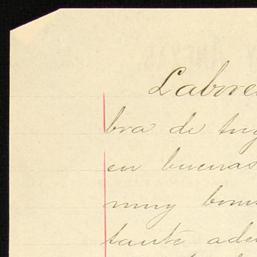 Labore
bra de trig
en buenas
muy bon
tante ade